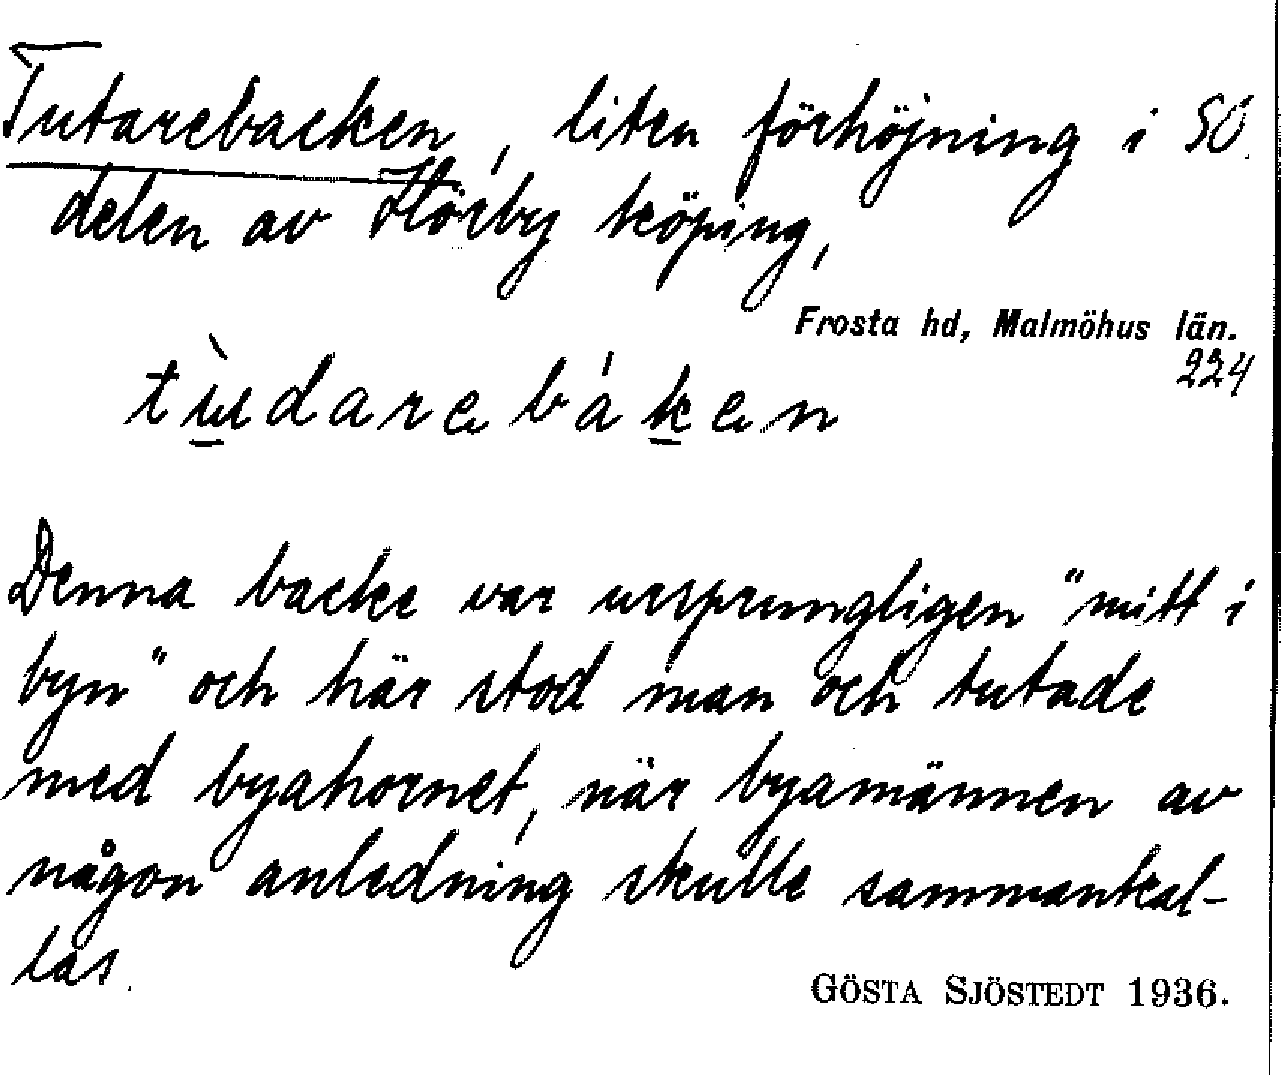 Tutarebacken, liten förhöjning i SÖ.
delen av Hörby köping,
Frosta hd, Malmöhus län.
224
tùdarebáken
Denna backe var ursprungligen "mitt i
byn" och här stod man och tutade
med byahornet, när byamännen av
någon anledning skulle sammankal-
las.
GÖSTA SJÖSTEDT 1936.